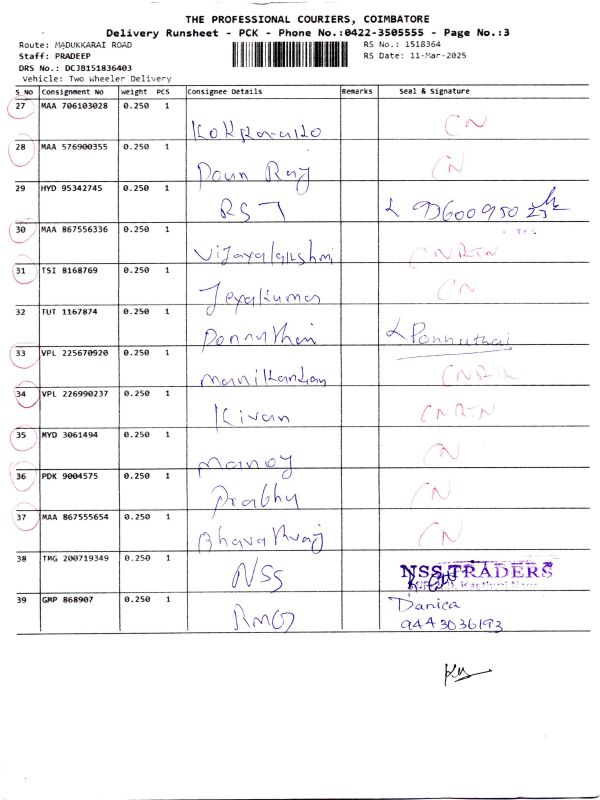 THE PROFESSIONAL COURIERS, COIMBATORE
Delivery Runsheet - PCK - Phone No.:0422-3505555 - Page No.:3
Route: MADUKKARAI ROAD
RS No.: 1518364
Staff: PRADEEP
RS Date: 11-Mar-2025
DRS No.: DCJB151836403
Vehicle: Two Wheeler Delivery
S_NO Consignment No Weight PCS Consignee Details Remarks Seal & Signature
27 MAA 706103028 0.250 1
CN
28 MAA 576900355 0.250 1
Poun Raj CN
29 HYD 95342745 0.250 1
RST
30 MAA 867556336 0.250 1
Vijayalakshmi CNRTN
31 TSI 8168769 0.250 1
Jeyakumar CN
32 TUT 1167874 0.250 1
Ponnuthai Ponnuthai
33 VPL 225670920 0.250 1
Manikandan CNRTN
34 VPL 226990237 0.250 1
Kiran CNRTN
35 MYD 3061494 0.250 1
Manoj CN
36 PDK 9004575 0.250 1
Prabhu CN
37 MAA 867555654 0.250 1
Bharathraj CN
38 TMG 200719349 0.250 1
NSS NSS TRADERS
39 GMP 868907 0.250 1
RMG Danica
9443036193